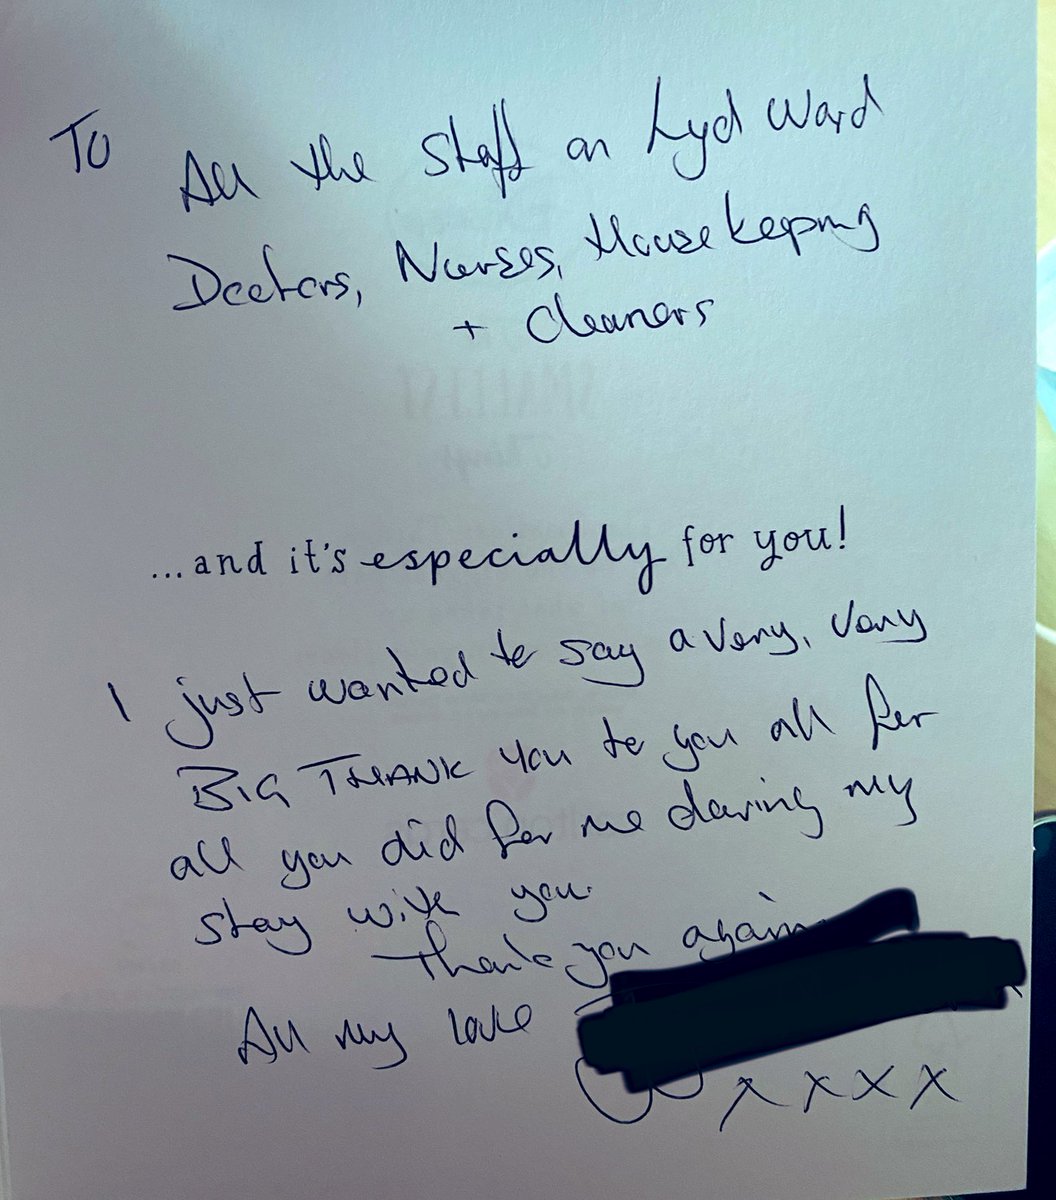 To All the Staff on Lyd Ward
Doctors, Nurses, Housekeeping
+ Cleaners
...and it's especially for you!
I just wanted to say a very, very
BIG THANK You to you all for
all you did for me during my
stay with you.
Thank you again
All my love
x x x x